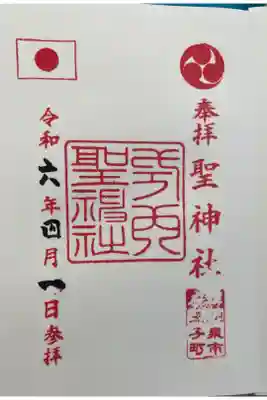 奉拝 聖神社
泉市
子町
聖神社
令和六年四月一日参拝